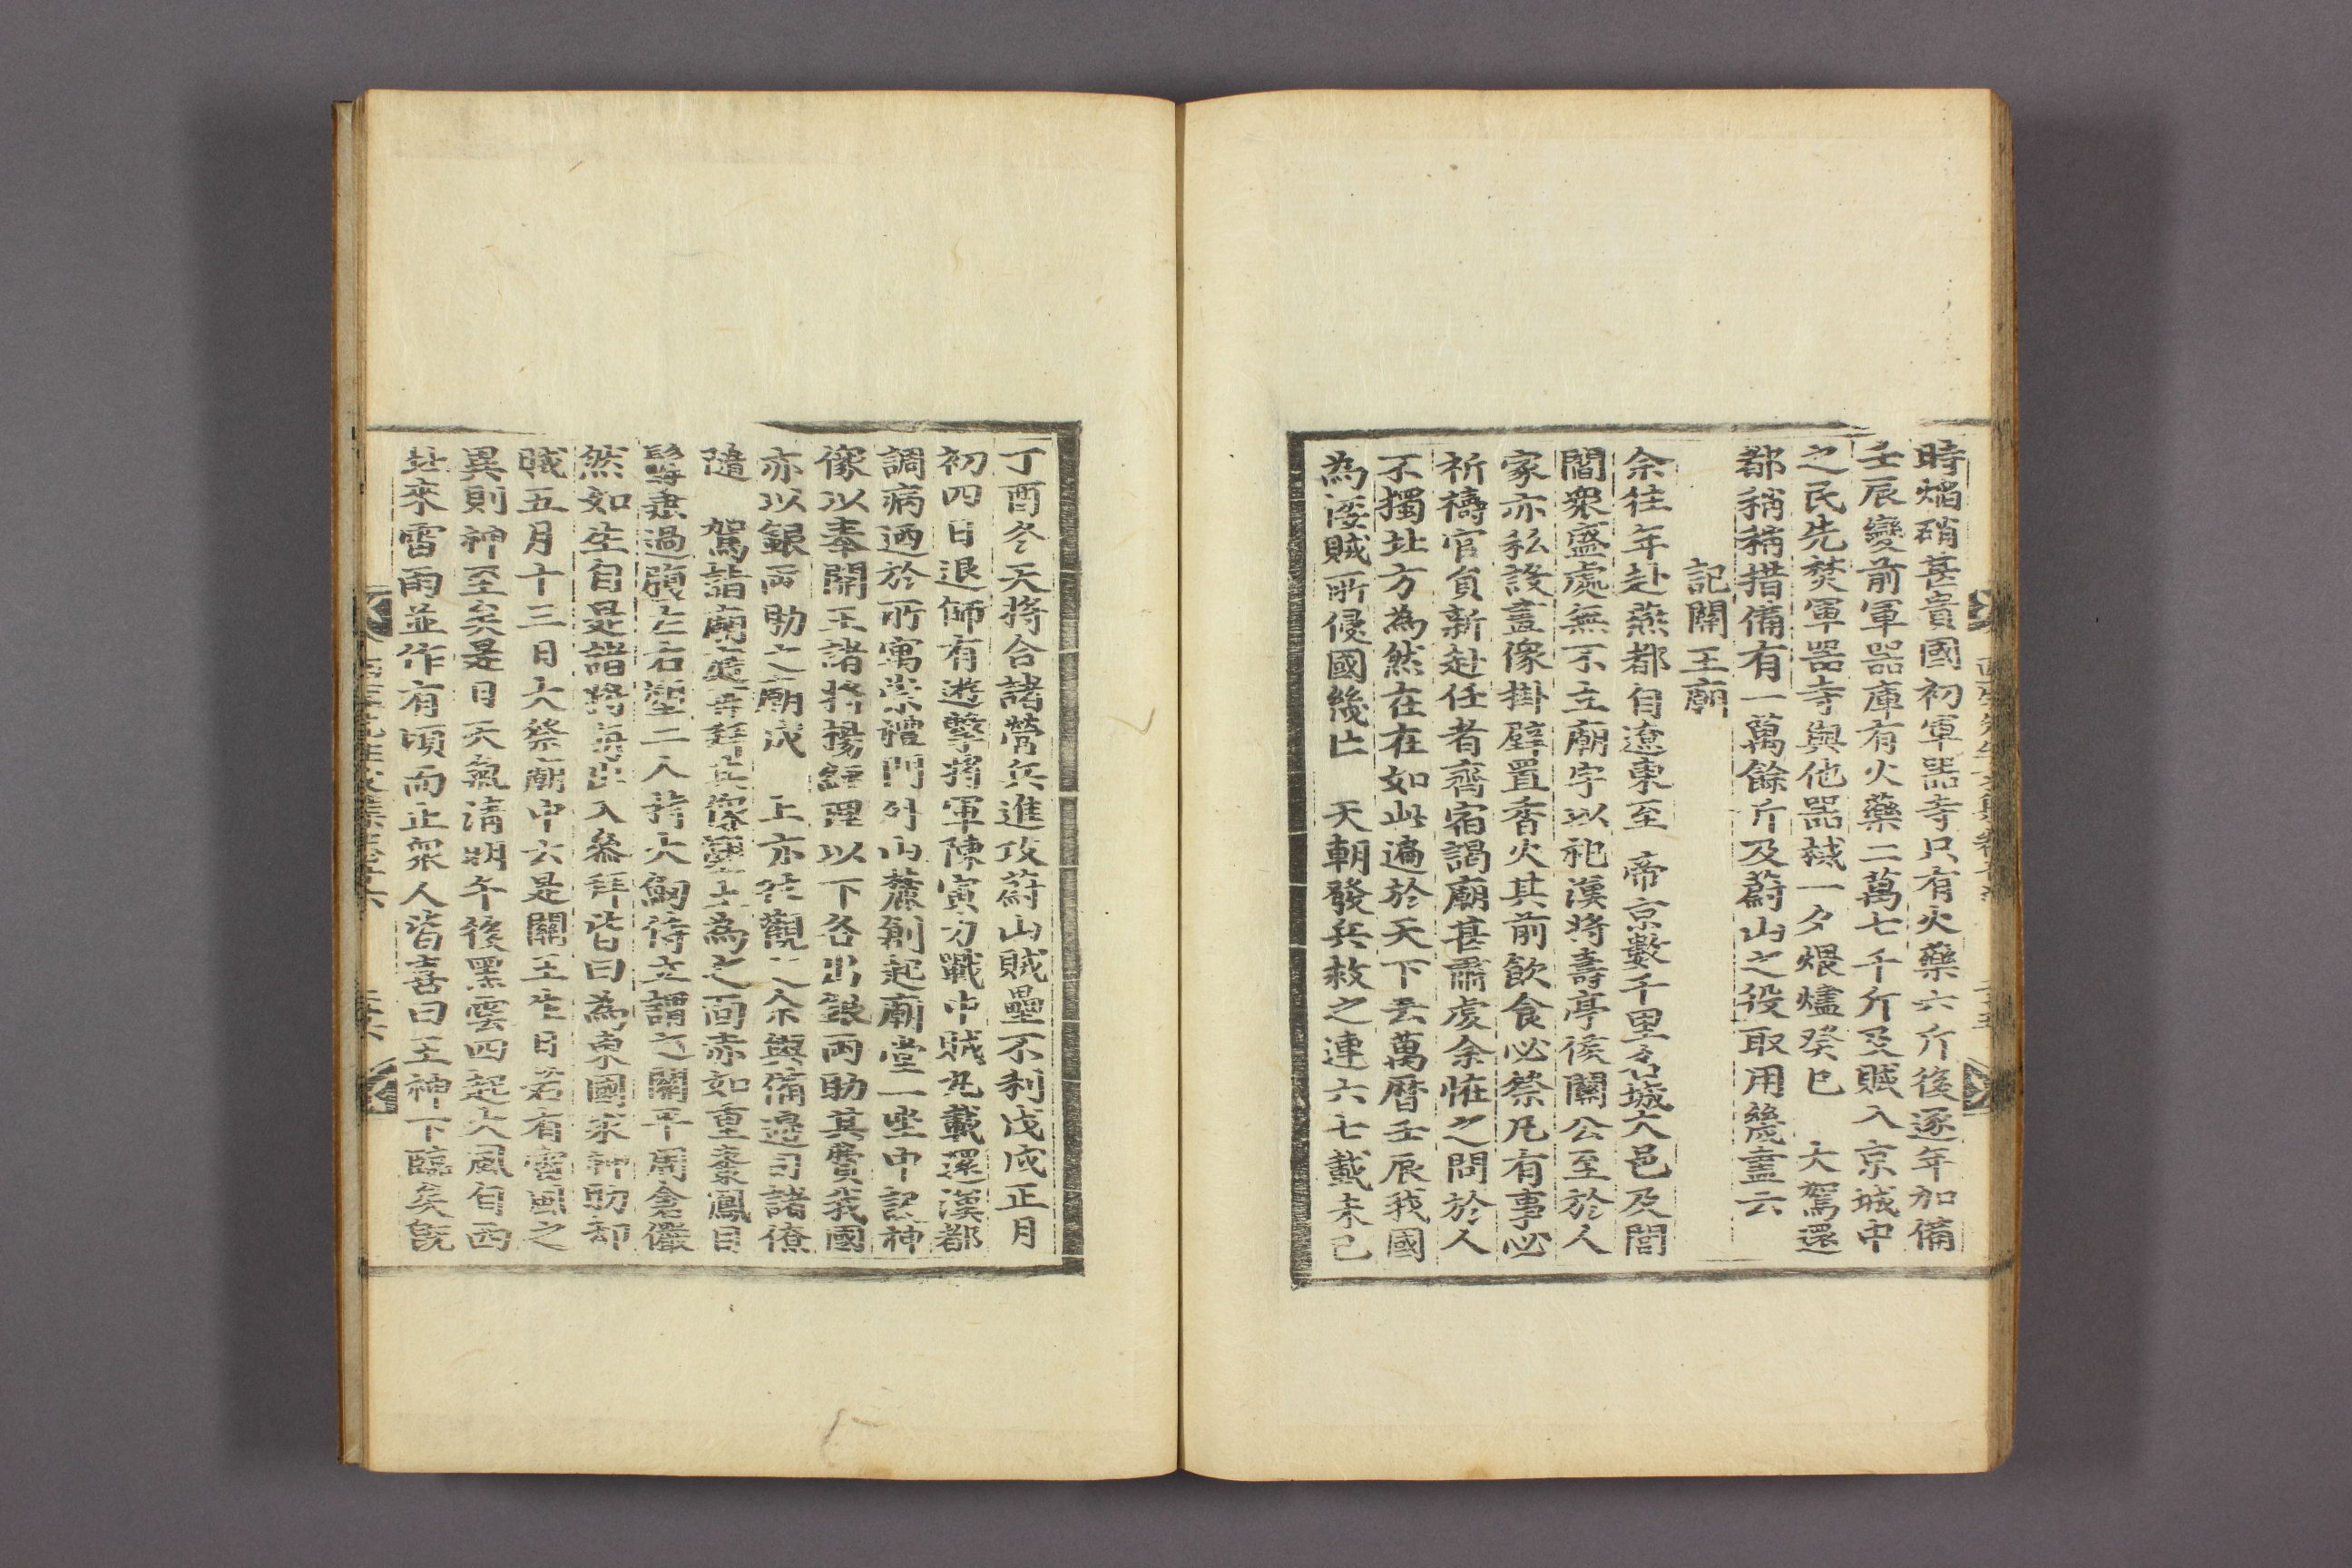 時焰硝甚貴國初軍器寺只有火藥六斤後逐年加備
壬辰變前軍器庫有火藥二萬七千斤及賊入京城中
之民先焚軍器寺與他器械一夕煨燼癸巳 大駕還
都稍稍措備有一萬餘斤及蔚山之役取用幾盡云
記關王廟
余往年赴燕都自遼東至 帝京數千里名城大邑及閭
閻衆盛處無不立廟宇以祀漢將壽亭侯關公至於人
家亦私設畫像掛壁置香火其前飮食必祭凡有事必
祈禱官員新赴任者齊宿謁廟甚肅虔余恠之問於人
不獨北方為然在在如此遍於天下云萬曆壬辰我國
為倭賊所侵國幾亡 天朝發兵救之連六七載未已
丁酉冬天將合諸營兵進攻蔚山賊壘不利戊戌正月
初四日退師有遊擊將軍陳寅力戰中賊丸載還漢都
調病迺於所寓崇禮門外山麓創起廟堂一坐中設神
像以奉關王諸將楊經理以下各出銀兩助其費我國
亦以銀兩助之廟成 上亦往觀之余與備邊司諸僚
隨 駕詣廟庭再拜其像塑土為之面赤如重棗鳳目
髯垂過腹左右塑二人持大劒侍立謂之關平周倉儼
然如生自是諸將每出入參拜皆曰為東國求神助却
賊五月十三日大祭廟中云是關王生日若有雷風之
異則神至矣是日天氣清明午後黑雲四起大風自西
北來雷雨並作有頃而止衆人皆喜曰王神下臨矣旣